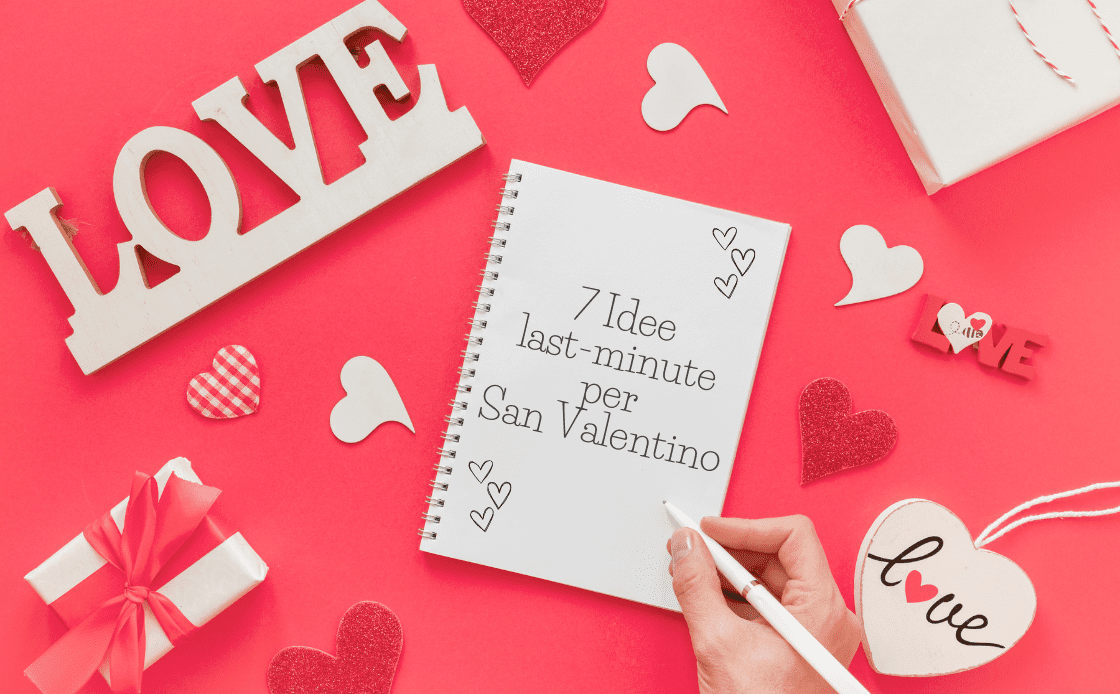 LOVE
7 Idee
last-minute
per
San Valentino
LOVE
love